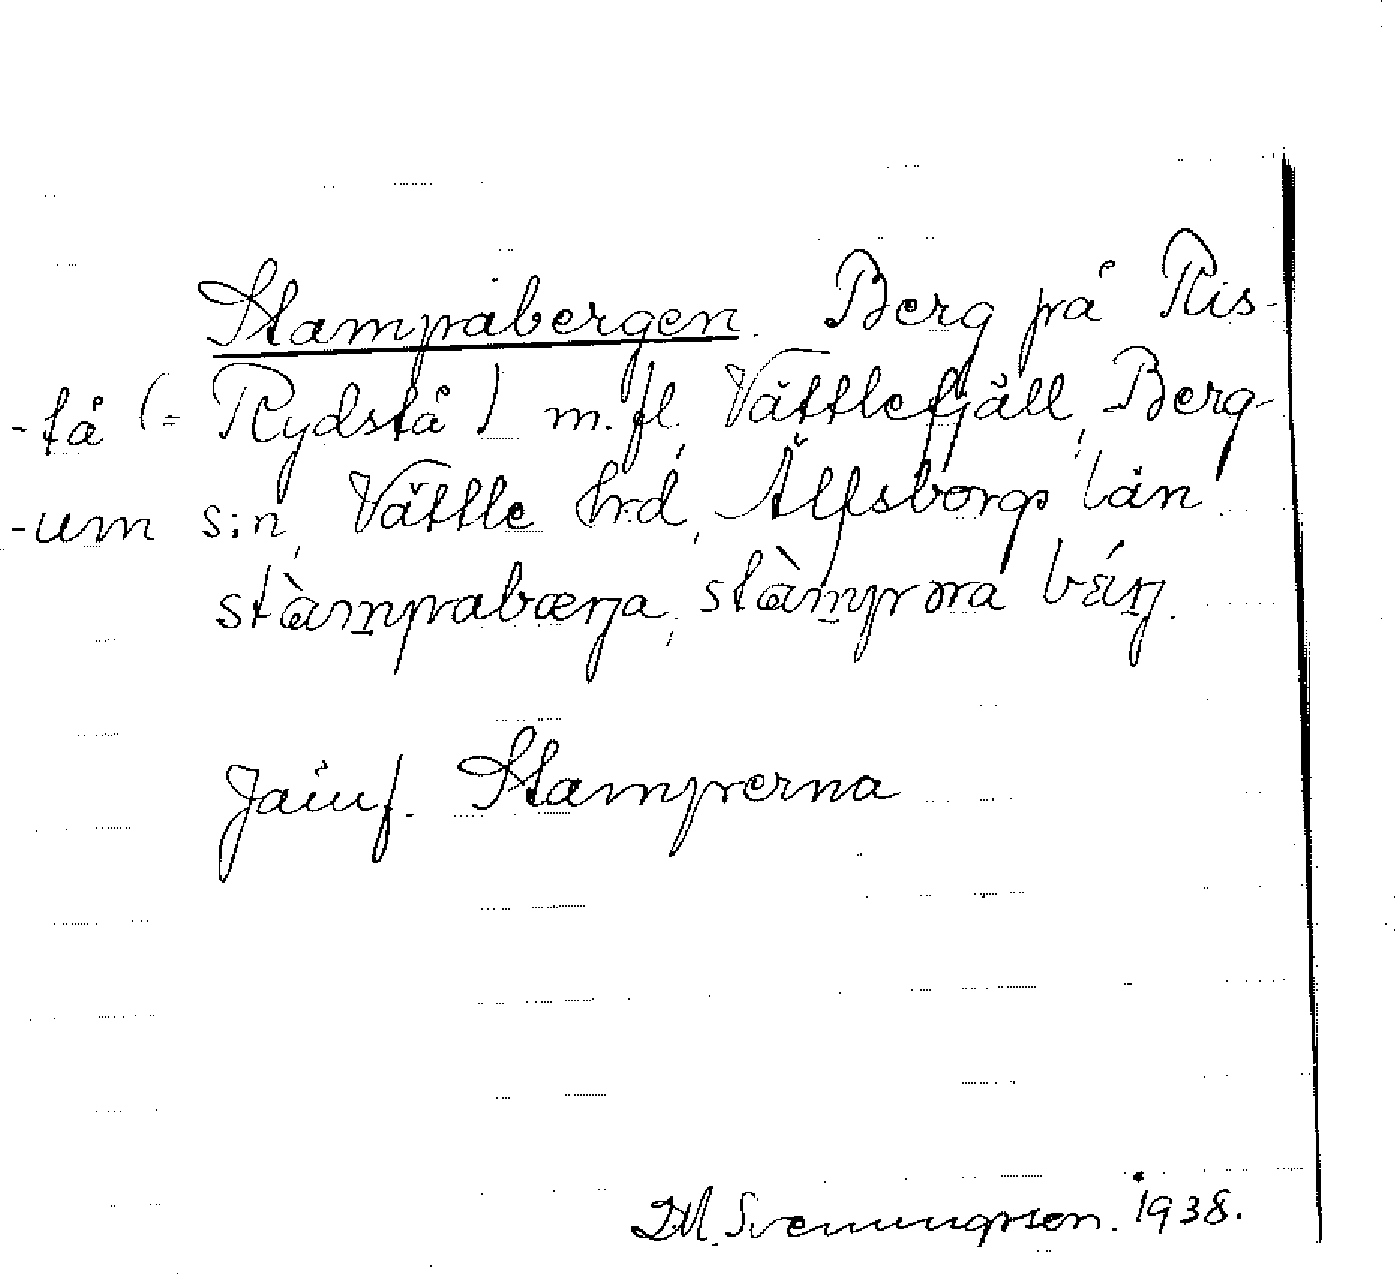 Stampabergen. Berg på Ris-
-tå (= Rydstå) m. fl. Vättlefjäll, Berg-
-um s:n, Vättle hrd, Älfsborgs län.
stàmpabærja, stàmpora
Jämf. Stamperna
D.M. Svenungson. 1938.